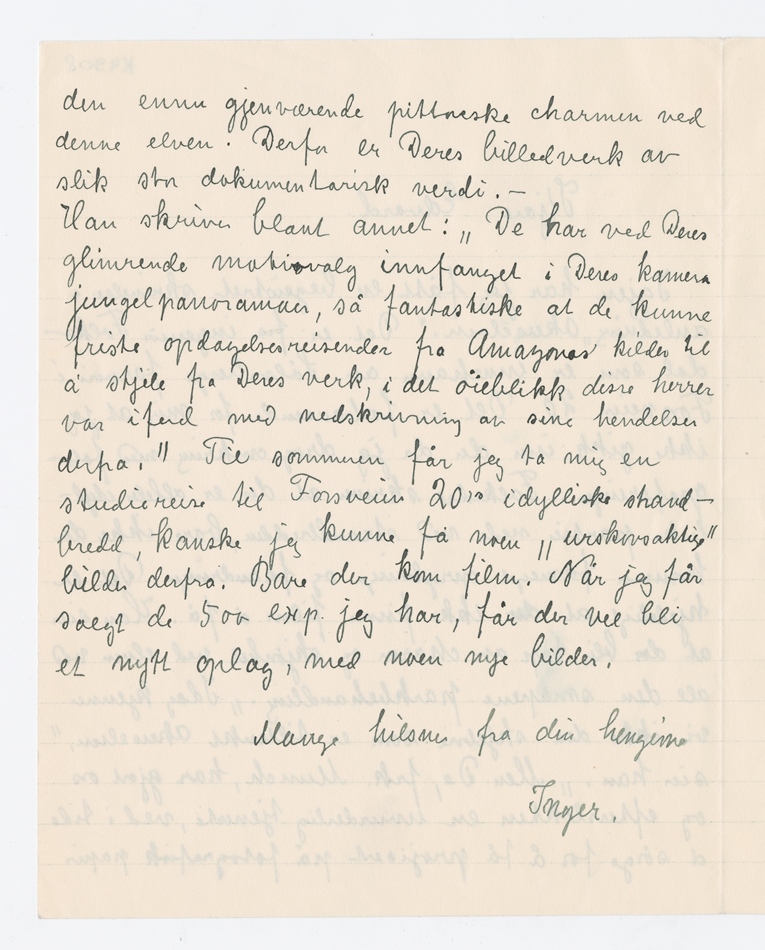 den ennu gjenværende pittoreske charmen ved
denne elven. Derfor er Deres billedverk av
slik stor dokumentarisk verdi. —
Han skriver blant annet: „De har ved Deres
glimrende motivvalg innfanget i Deres kamera
jungelpanoramaer, så fantastiske at de kunne
friste opdagelsesreisender fra Amazonas' kilder til
å stjele fra Deres verk, i det öieblikk disse herrer
var iferd med nedskrivning av sine hendelser
derfra." Til sommeren får jeg ta mig en
studiereise til Forsveien 20's idylliske strand-
bredd, kanske jeg kunne få noen „urskovsaktige"
bilder derfra. Bare der kom film. Når jeg får
solgt de 500 exp. jeg har, får der vel bli
et nytt oplag, med noen nye bilder.
Mange hilsner fra din hengivne
Inger.